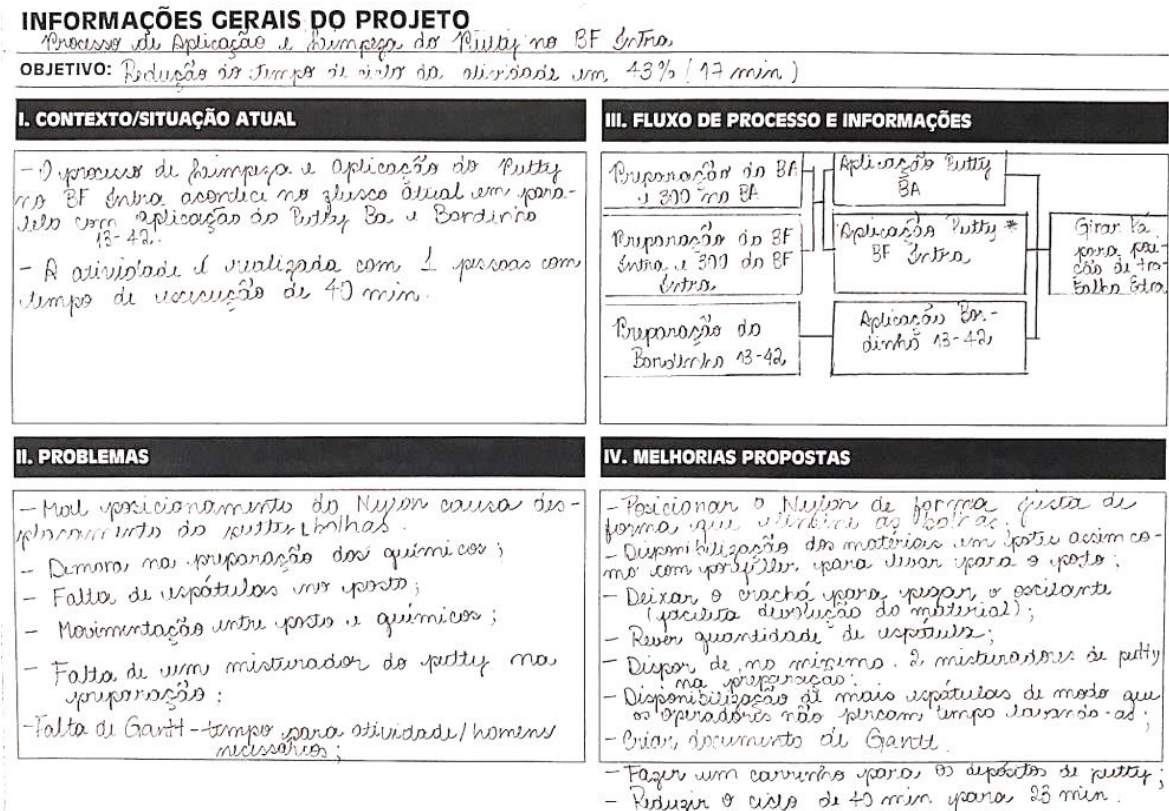 INFORMAÇÕES GERAIS DO PROJETO
Processo de Aplicação e Limpeza do Putty no BF Intra
OBJETIVO: Redução do tempo de ciclo da atividade em 43% (17 min)
I. CONTEXTO/SITUAÇÃO ATUAL
- O processo de Limpeza e aplicação do Putty
no BF Intra acontece no fluxo atual em para-
lelo com aplicação do Putty Ba e Bordinho
13-42.
- A atividade é realizada com 1 pessoas com
tempo de execução de 40 min.
III. FLUXO DE PROCESSO E INFORMAÇÕES
Preparação do BA
e 300 no BA
Preparação do BF
Intra e 300 do BF
Intra
Preparação do
Bordinho 13-42
Aplicação Putty
BA
Aplicação Putty *
BF Intra
Aplicação Bor-
dinho 13-42
Girar Pá
para posi-
ção de tra-
balho Extra
II. PROBLEMAS
- Mal posicionamento do Nylon causa des-
placamento do putty/bolhas.
- Demora na preparação dos químicos;
- Falta de espátulas no posto;
- Movimentação entre posto e químicos;
- Falta de um misturador do putty na
preparação;
- Falta de Gantt - tempo para atividade/homens
necessários;
IV. MELHORIAS PROPOSTAS
- Posicionar o Nylon de forma justa de
forma que elimine as bolhas;
- Disponibilização dos matérias em potes assim co-
mo com para levar para o posto;
- Deixar o crachá para pegar o oscilante
(facilita devolução do material);
- Rever quantidade de espátula;
- Dispor de no mínimo 2 misturadores de putty
na preparação;
- Disponibilização de mais espátulas de modo que
os operadores não percam tempo lavando-as;
- Criar documento de Gantt.
- Fazer um carrinho para os depósitos de putty;
- Reduzir o ciclo de 40 min para 23 min.